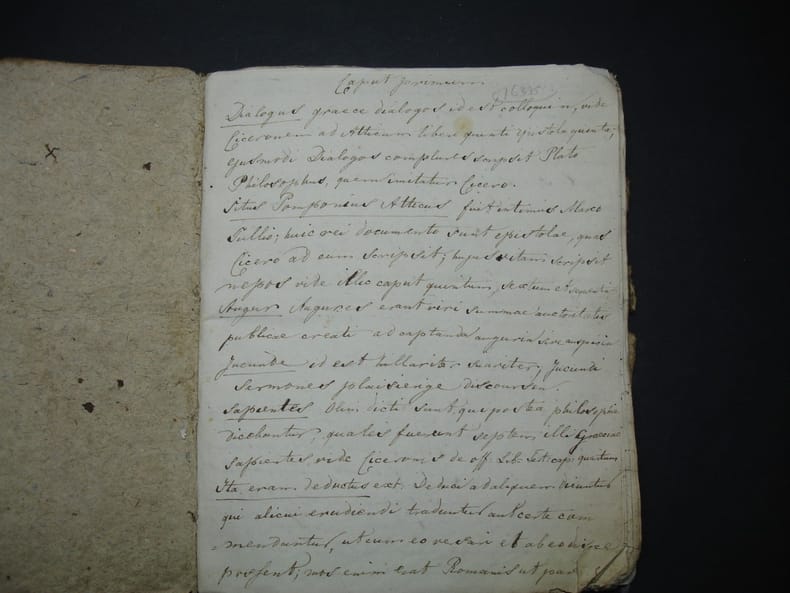 Caput primum
1635
Dialogus graece dialogos id est colloquium, vide
Ciceronem ad Atticum libri quinti epistola quinta;
ejusmodi Dialogos complures scripsit Plato
Philosophus, quem imitatur Cicero.
Titus Pomponius Atticus fuit intimus Marco
Tullio; huic rei documento sunt epistolae, quas
Cicero ad eum scripsit; hujus vitam scripsit
nepos vide illic caput quintum, sextum et
Augur Augures erant viri summae auctoritatis
publicae creati ad captanda auguria sive auspicia
Jucunde id est hillariter suaviter, Jucundi
Sermones plaisierige discoursen.
Sapientes Olim dicti sunt, qui postea philosophi
dicebantur, quales fuerunt septem illi Graeciae
Sapientes, vide Ciceronis de off Lib: cap: quartum
Ita eram deductus ext. Deduci ad aliquem dicuntur
qui alicui erudiendi traduntur aut certe com
=menduntur, ut cum eo versari et ab eo
possent, mos enim erat Romanis ut